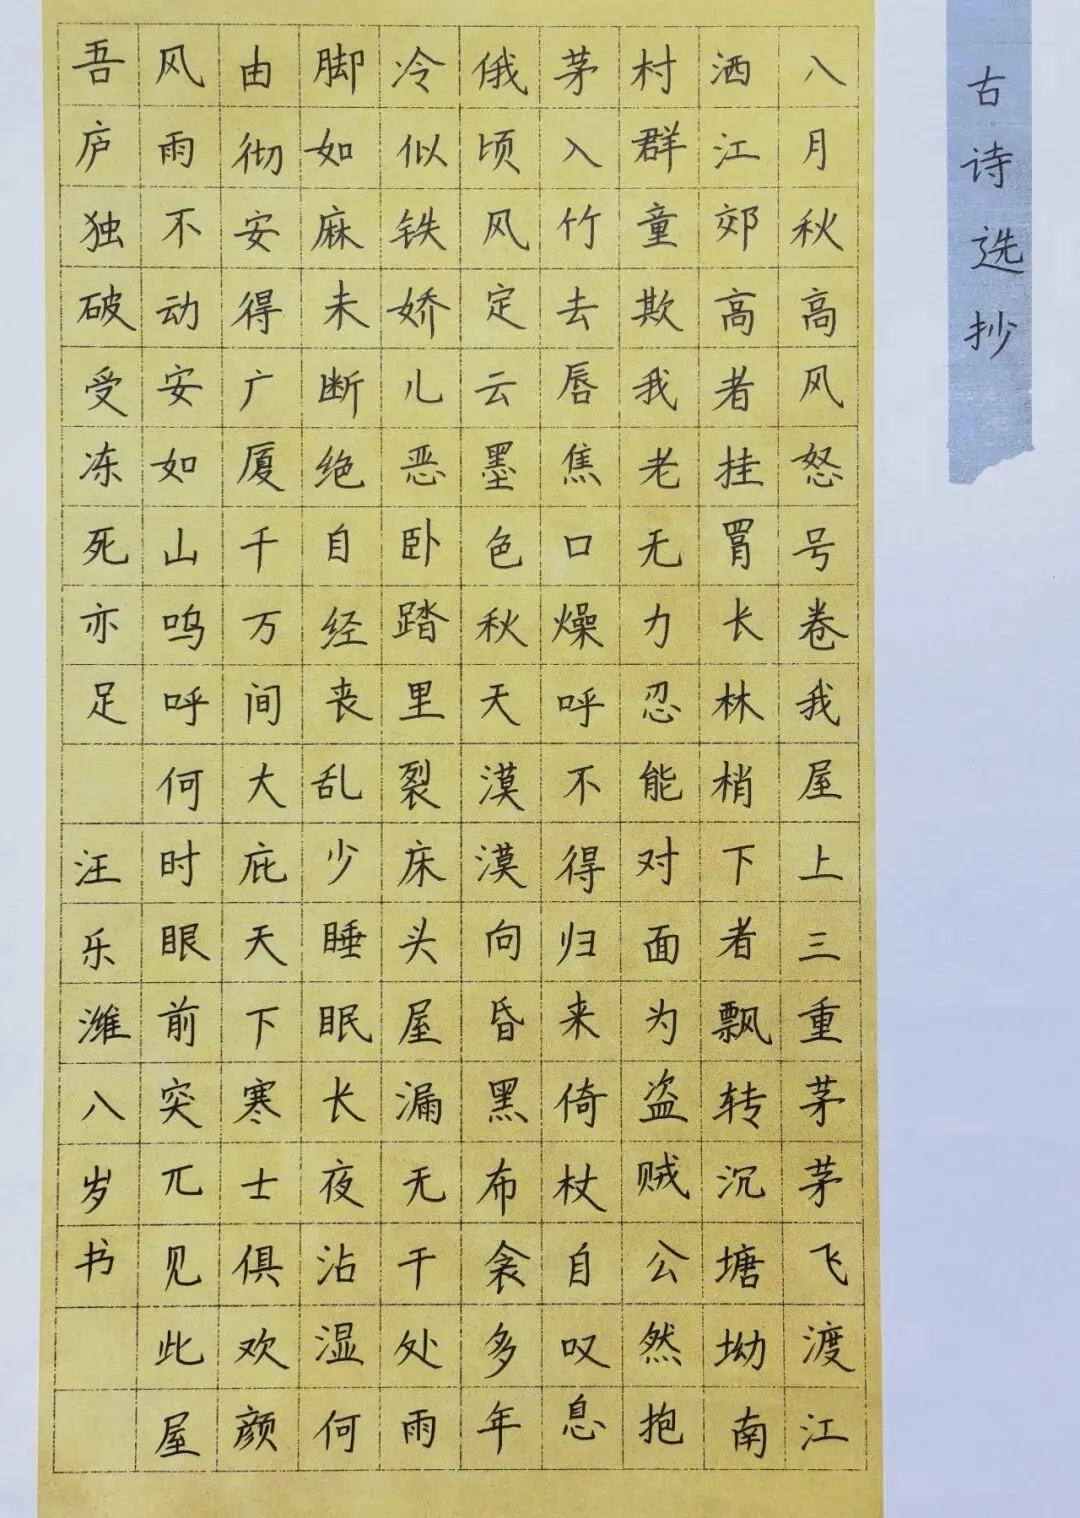 古诗选抄
八月秋高风怒号卷我屋上三重茅茅飞渡江
洒江郊高者挂罥长林梢下者飘转沉塘坳南
村群童欺我老无力忍能对面为盗贼公然抱
茅入竹去唇焦口燥呼不得归来倚杖自叹息
俄顷风定云墨色秋天漠漠向昏黑布衾多年
冷似铁娇儿恶卧踏里裂床头屋漏无干处雨
脚如麻未断绝自经丧乱少睡眠长夜沾湿何
由彻安得广厦千万间大庇天下寒士俱欢颜
风雨不动安如山呜呼何时眼前突兀见此屋
吾庐独破受冻死亦足 汪乐潍八岁书